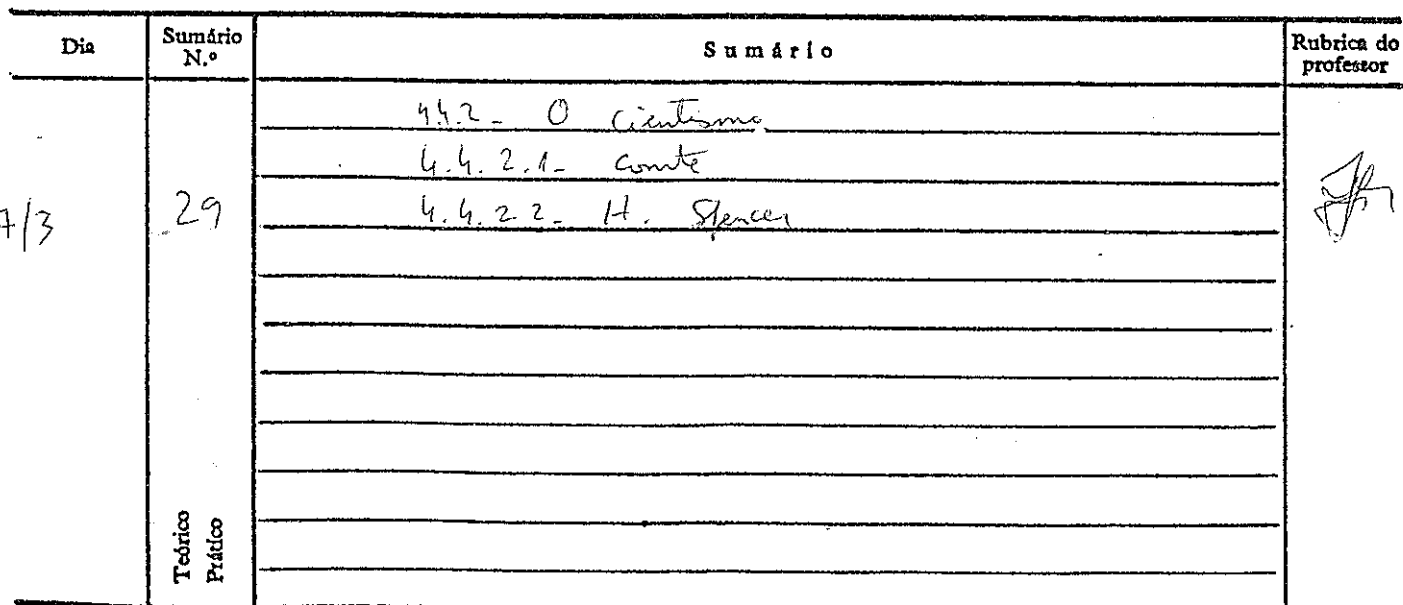 Dia
Sumário N.º
Sumário
Rubrica do professor
4.4.2 - O cientismo
4.4.2.1 - Comte
7/3
29
4.4.2.2 - H. Spencer
Teórico
Prático